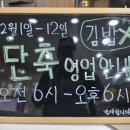 12월1일-12일
김밥X
단축 영업안내
오전 6시-오후 6시